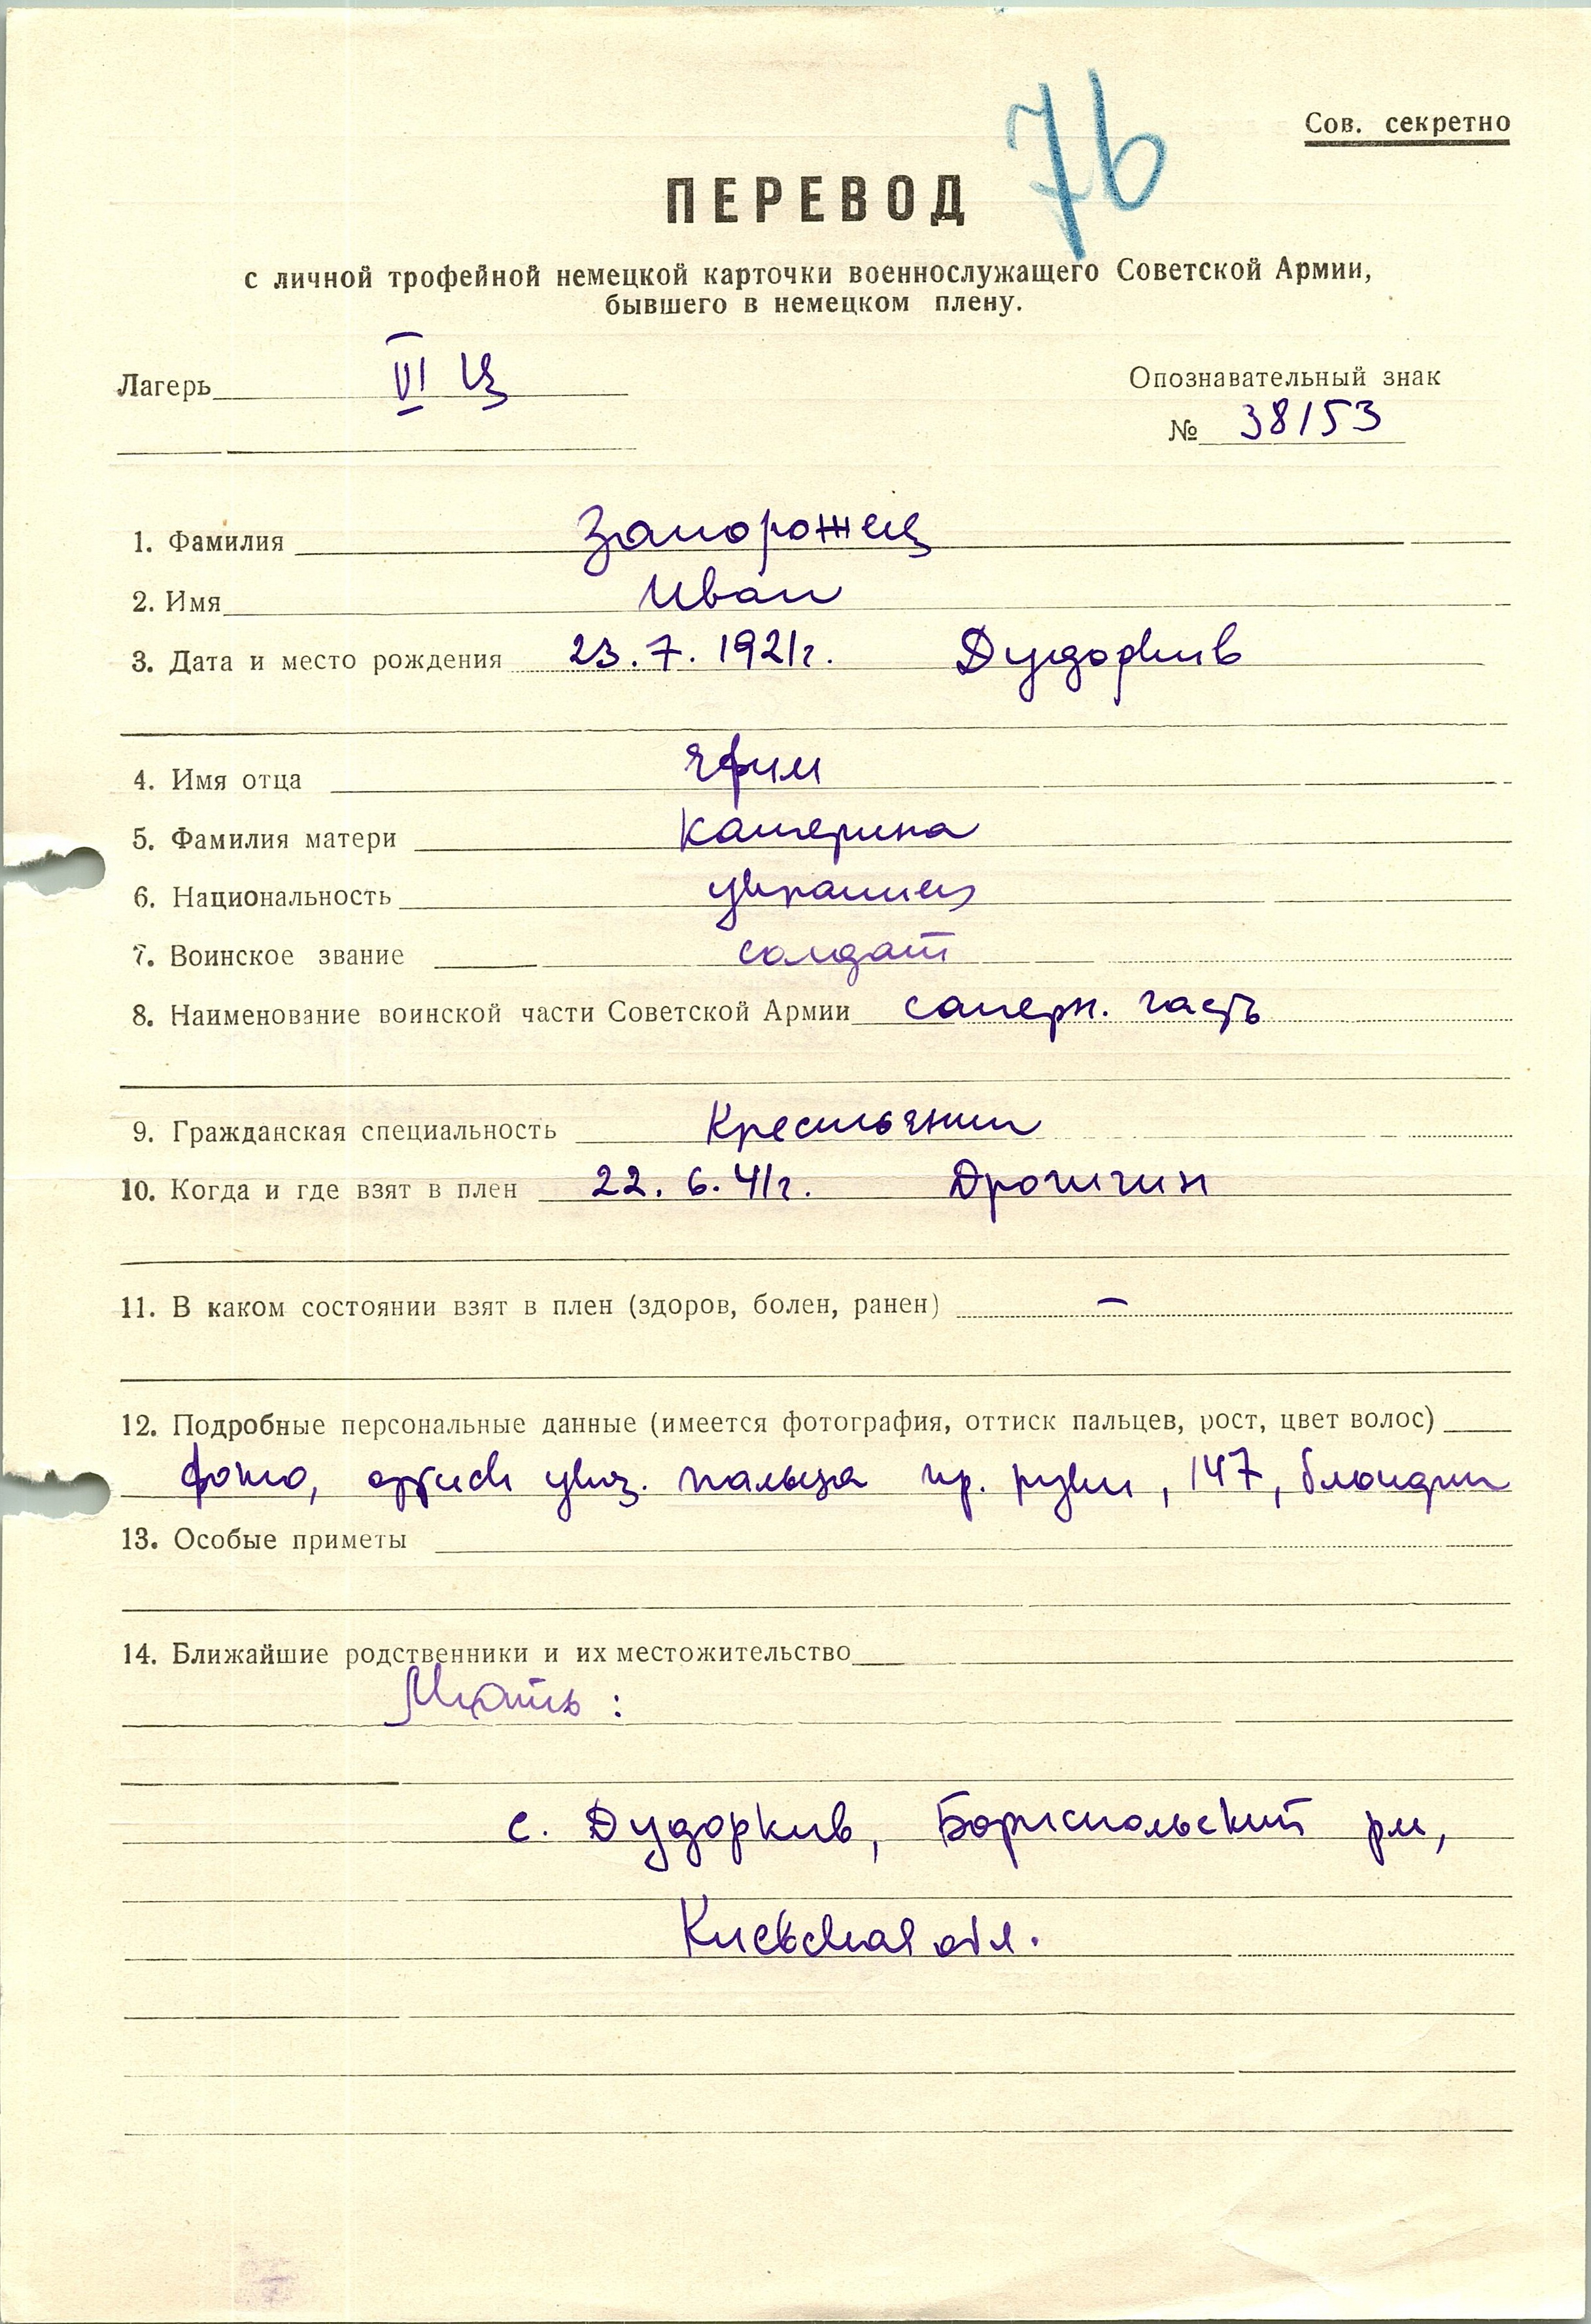 76
Сов. секретно
ПЕРЕВОД
с личной трофейной немецкой карточки военнослужащего Советской Армии,
бывшего в немецком плену.
Лагерь VI Ц
Опознавательный знак
№ 38153
1. Фамилия Запорожец
2. Имя Иван
3. Дата и место рождения 23.7.1921г. Дудоркив
4. Имя отца Ефим
5. Фамилия матери Катерина
6. Национальность украинец
7. Воинское звание солдат
8. Наименование воинской части Советской Армии саперн. часть
9. Гражданская специальность Крестьянин
10. Когда и где взят в плен 22.6.41г. Дрогичин
11. В каком состоянии взят в плен (здоров, болен, ранен) —
12. Подробные персональные данные (имеется фотография, оттиск пальцев, рост, цвет волос)
фото, оттиск указ. пальца пр. руки, 147, блондин
13. Особые приметы
14. Ближайшие родственники и их местожительство
Мать:
с. Дудоркив, Бориспольский рн,
Киевская обл.